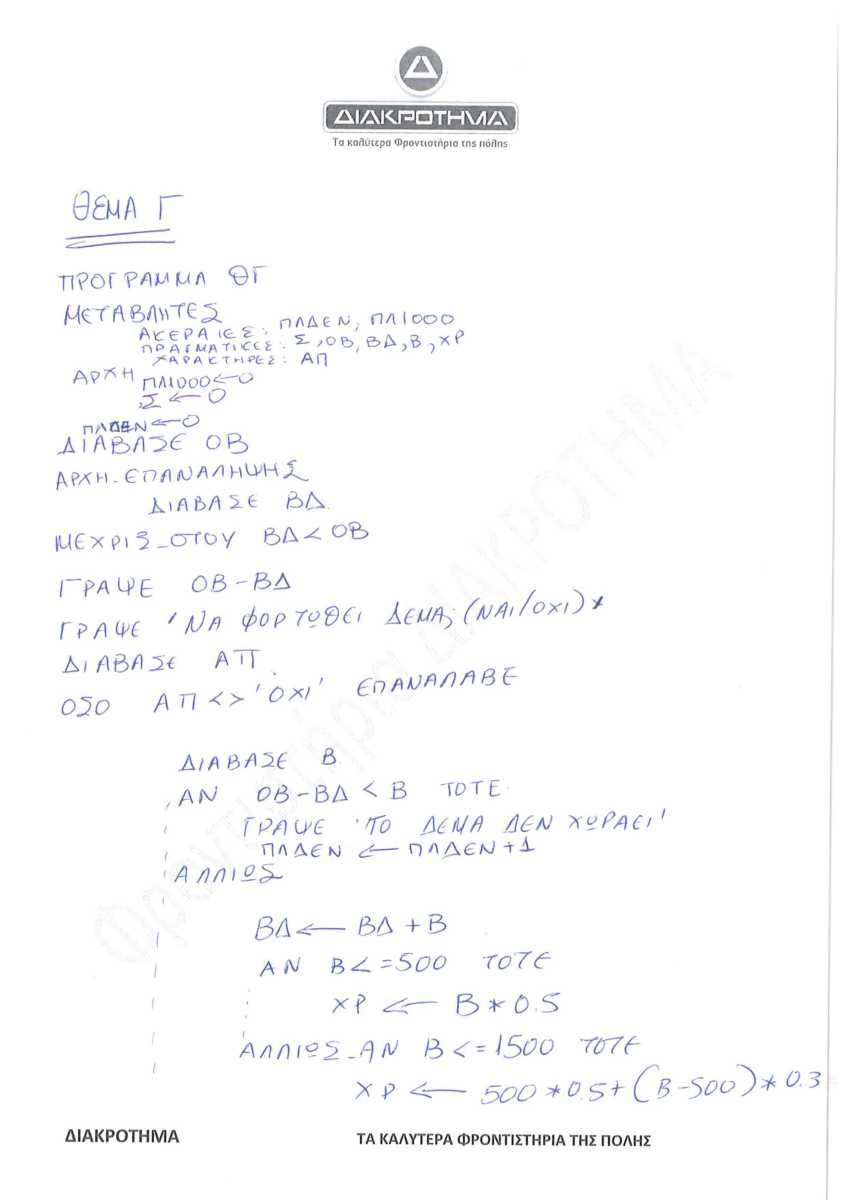 ΔΙΑΚΡΟΤΗΜΑ
Τα καλύτερα Φροντιστήρια της πόλης
ΘΕΜΑ Γ
ΠΡΟΓΡΑΜΜΑ ΘΓ
ΜΕΤΑΒΛΗΤΕΣ
ΑΚΕΡΑΙΕΣ: ΠΛΔΕΝ, ΠΛ1000
ΠΡΑΓΜΑΤΙΚΕΣ: Σ, ΟΒ, ΒΔ, Β, ΧΡ
ΧΑΡΑΚΤΗΡΕΣ: ΑΠ
ΑΡΧΗ ΠΛ1000 <— 0
Σ <— 0
ΠΛΔΕΝ <— 0
ΔΙΑΒΑΣΕ ΟΒ
ΑΡΧΗ_ΕΠΑΝΑΛΗΨΗΣ
ΔΙΑΒΑΣΕ ΒΔ
ΜΕΧΡΙΣ_ΟΤΟΥ ΒΔ < ΟΒ
ΓΡΑΨΕ ΟΒ-ΒΔ
ΓΡΑΨΕ 'ΝΑ ΦΟΡΤΩΘΕΙ ΔΕΜΑ; (ΝΑΙ/ΟΧΙ)'
ΔΙΑΒΑΣΕ ΑΠ
ΟΣΟ ΑΠ <> 'ΟΧΙ' ΕΠΑΝΑΛΑΒΕ
ΔΙΑΒΑΣΕ Β
ΑΝ ΟΒ-ΒΔ < Β ΤΟΤΕ
ΓΡΑΨΕ 'ΤΟ ΔΕΜΑ ΔΕΝ ΧΩΡΑΕΙ'
ΠΛΔΕΝ <— ΠΛΔΕΝ+1
ΑΛΛΙΩΣ
ΒΔ <— ΒΔ + Β
ΑΝ Β <= 500 ΤΟΤΕ
ΧΡ <— Β * 0.5
ΑΛΛΙΩΣ_ΑΝ Β <= 1500 ΤΟΤΕ
ΧΡ <— 500 * 0.5 + (Β-500) * 0.3
Φροντιστήρια ΔΙΑΚΡΟΤΗΜΑ
ΔΙΑΚΡΟΤΗΜΑ ΤΑ ΚΑΛΥΤΕΡΑ ΦΡΟΝΤΙΣΤΗΡΙΑ ΤΗΣ ΠΟΛΗΣ